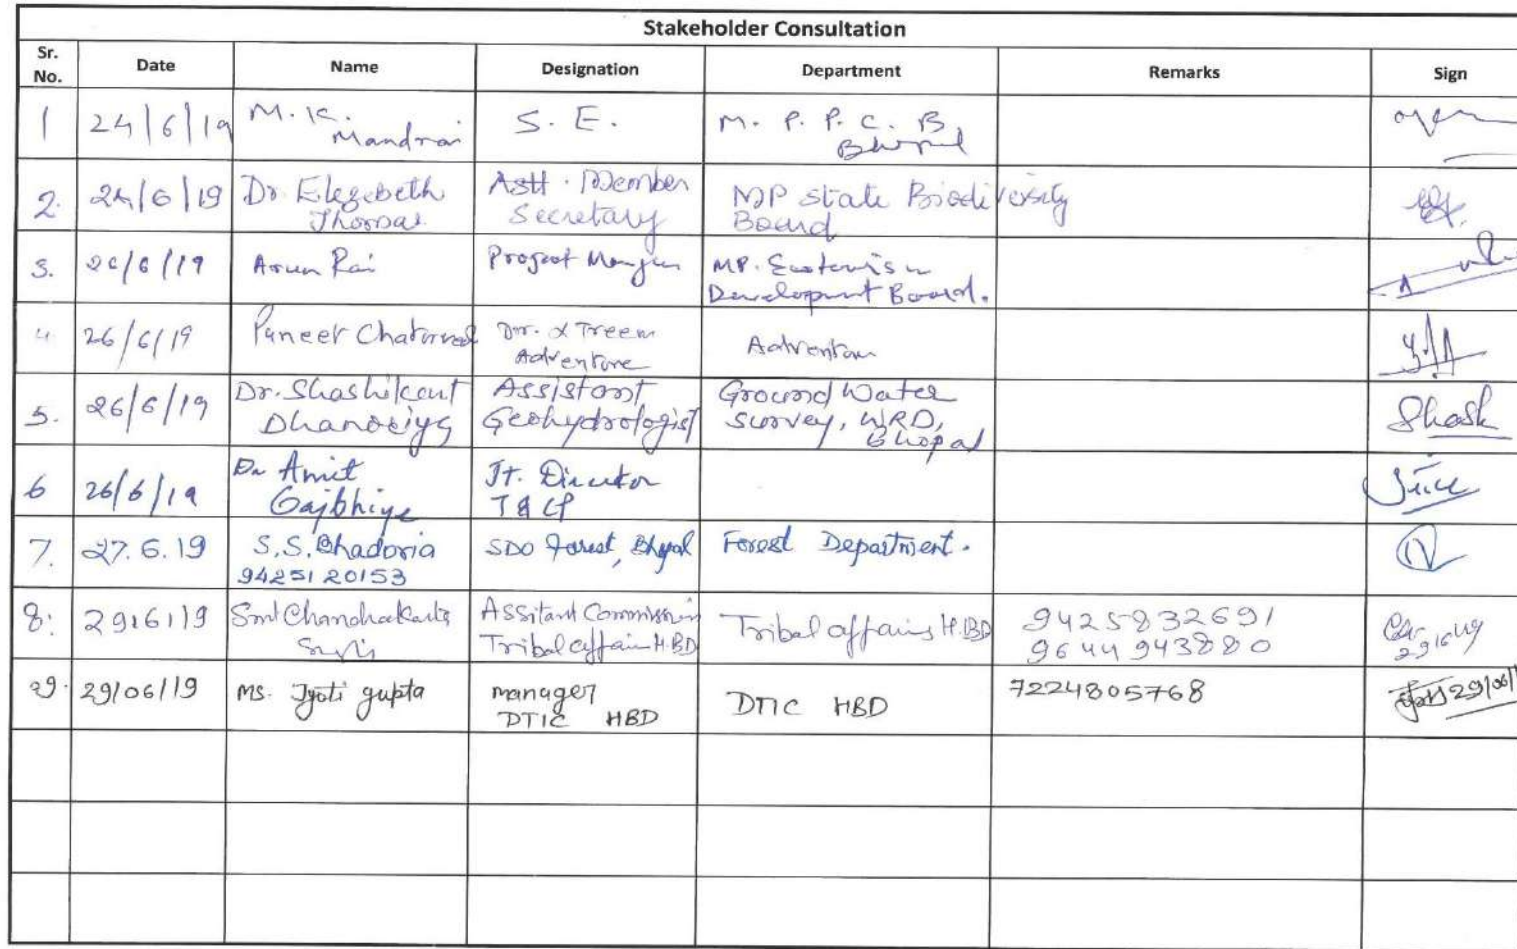 Stakeholder Consultation
Sr. No. Date Name Designation Department Remarks Sign
1 24/6/19 M. K. Mandrai S. E. M. P. P. C. B. Bhopal
2. 24/6/19 Dr. Elezebeth Thomas Astt. Member Secretary MP State Biodiversity Board
3. 26/6/19 Arun Rai Project Manger MP. Ecotourism Development Board.
4 26/6/19 Puneet Adventure
5. 26/6/19 Dr. Shashikant Assistant Geohydrologist Ground Water Survey, WRD, Bhopal Shash
6 26/6/19 Dr Amit Gajbhiye Jt. Director T & CP
7. 27.6.19 S.S. Bhadoria 9425120153 SDO Forest, Bhopal Forest Department.
8. 29/6/19 Smt Assitant Tribal affair HBD Tribal affairs HBD 9425832691 9644943880 29/6/19
9. 29/06/19 MS. Jyoti gupta manager DTIC HBD DTIC HBD 7224805768 29/06/